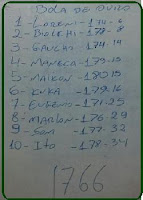 BOLA DE OURO
1 - LORENI - 174 - 6
2 - BIOLCHI - 178 - 8
3 - GAUCHI - 174 - 14
4 - MANECA - 173 - 15
5 - MAIKON - 180 - 15
6 - KUKA - 179 - 16
7 - EUGENIO - 171 - 25
8 - MARLON - 176 - 29
9 - SONI - 177 - 32
10 - ITO - 178 - 34
1766